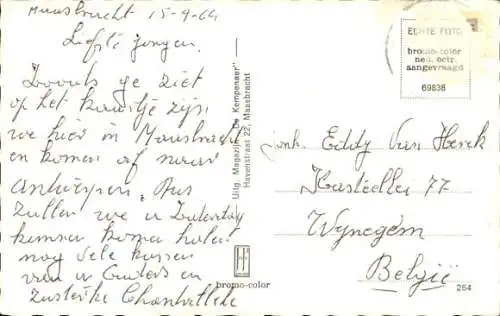 Maasbracht 15-4-64
Liefste jongen.
Zooals ge ziet
op het kaartje zijn
we hier in Maasbracht
en komen af naar
Antwerpen. Dus
Zullen we u Zaterdag
komen halen
nog vele kussen
van u Ouders en
zusterke Chantalleke
Uitg. Magazijn "De Kempenaer"
Havenstraat 22, Maasbracht
bromo-color
ECHTE FOTO
bromo-color
ned. octr.
aangevraagd
69838
jonk. Eddy Van Herck
77
Wijnegem
België
264